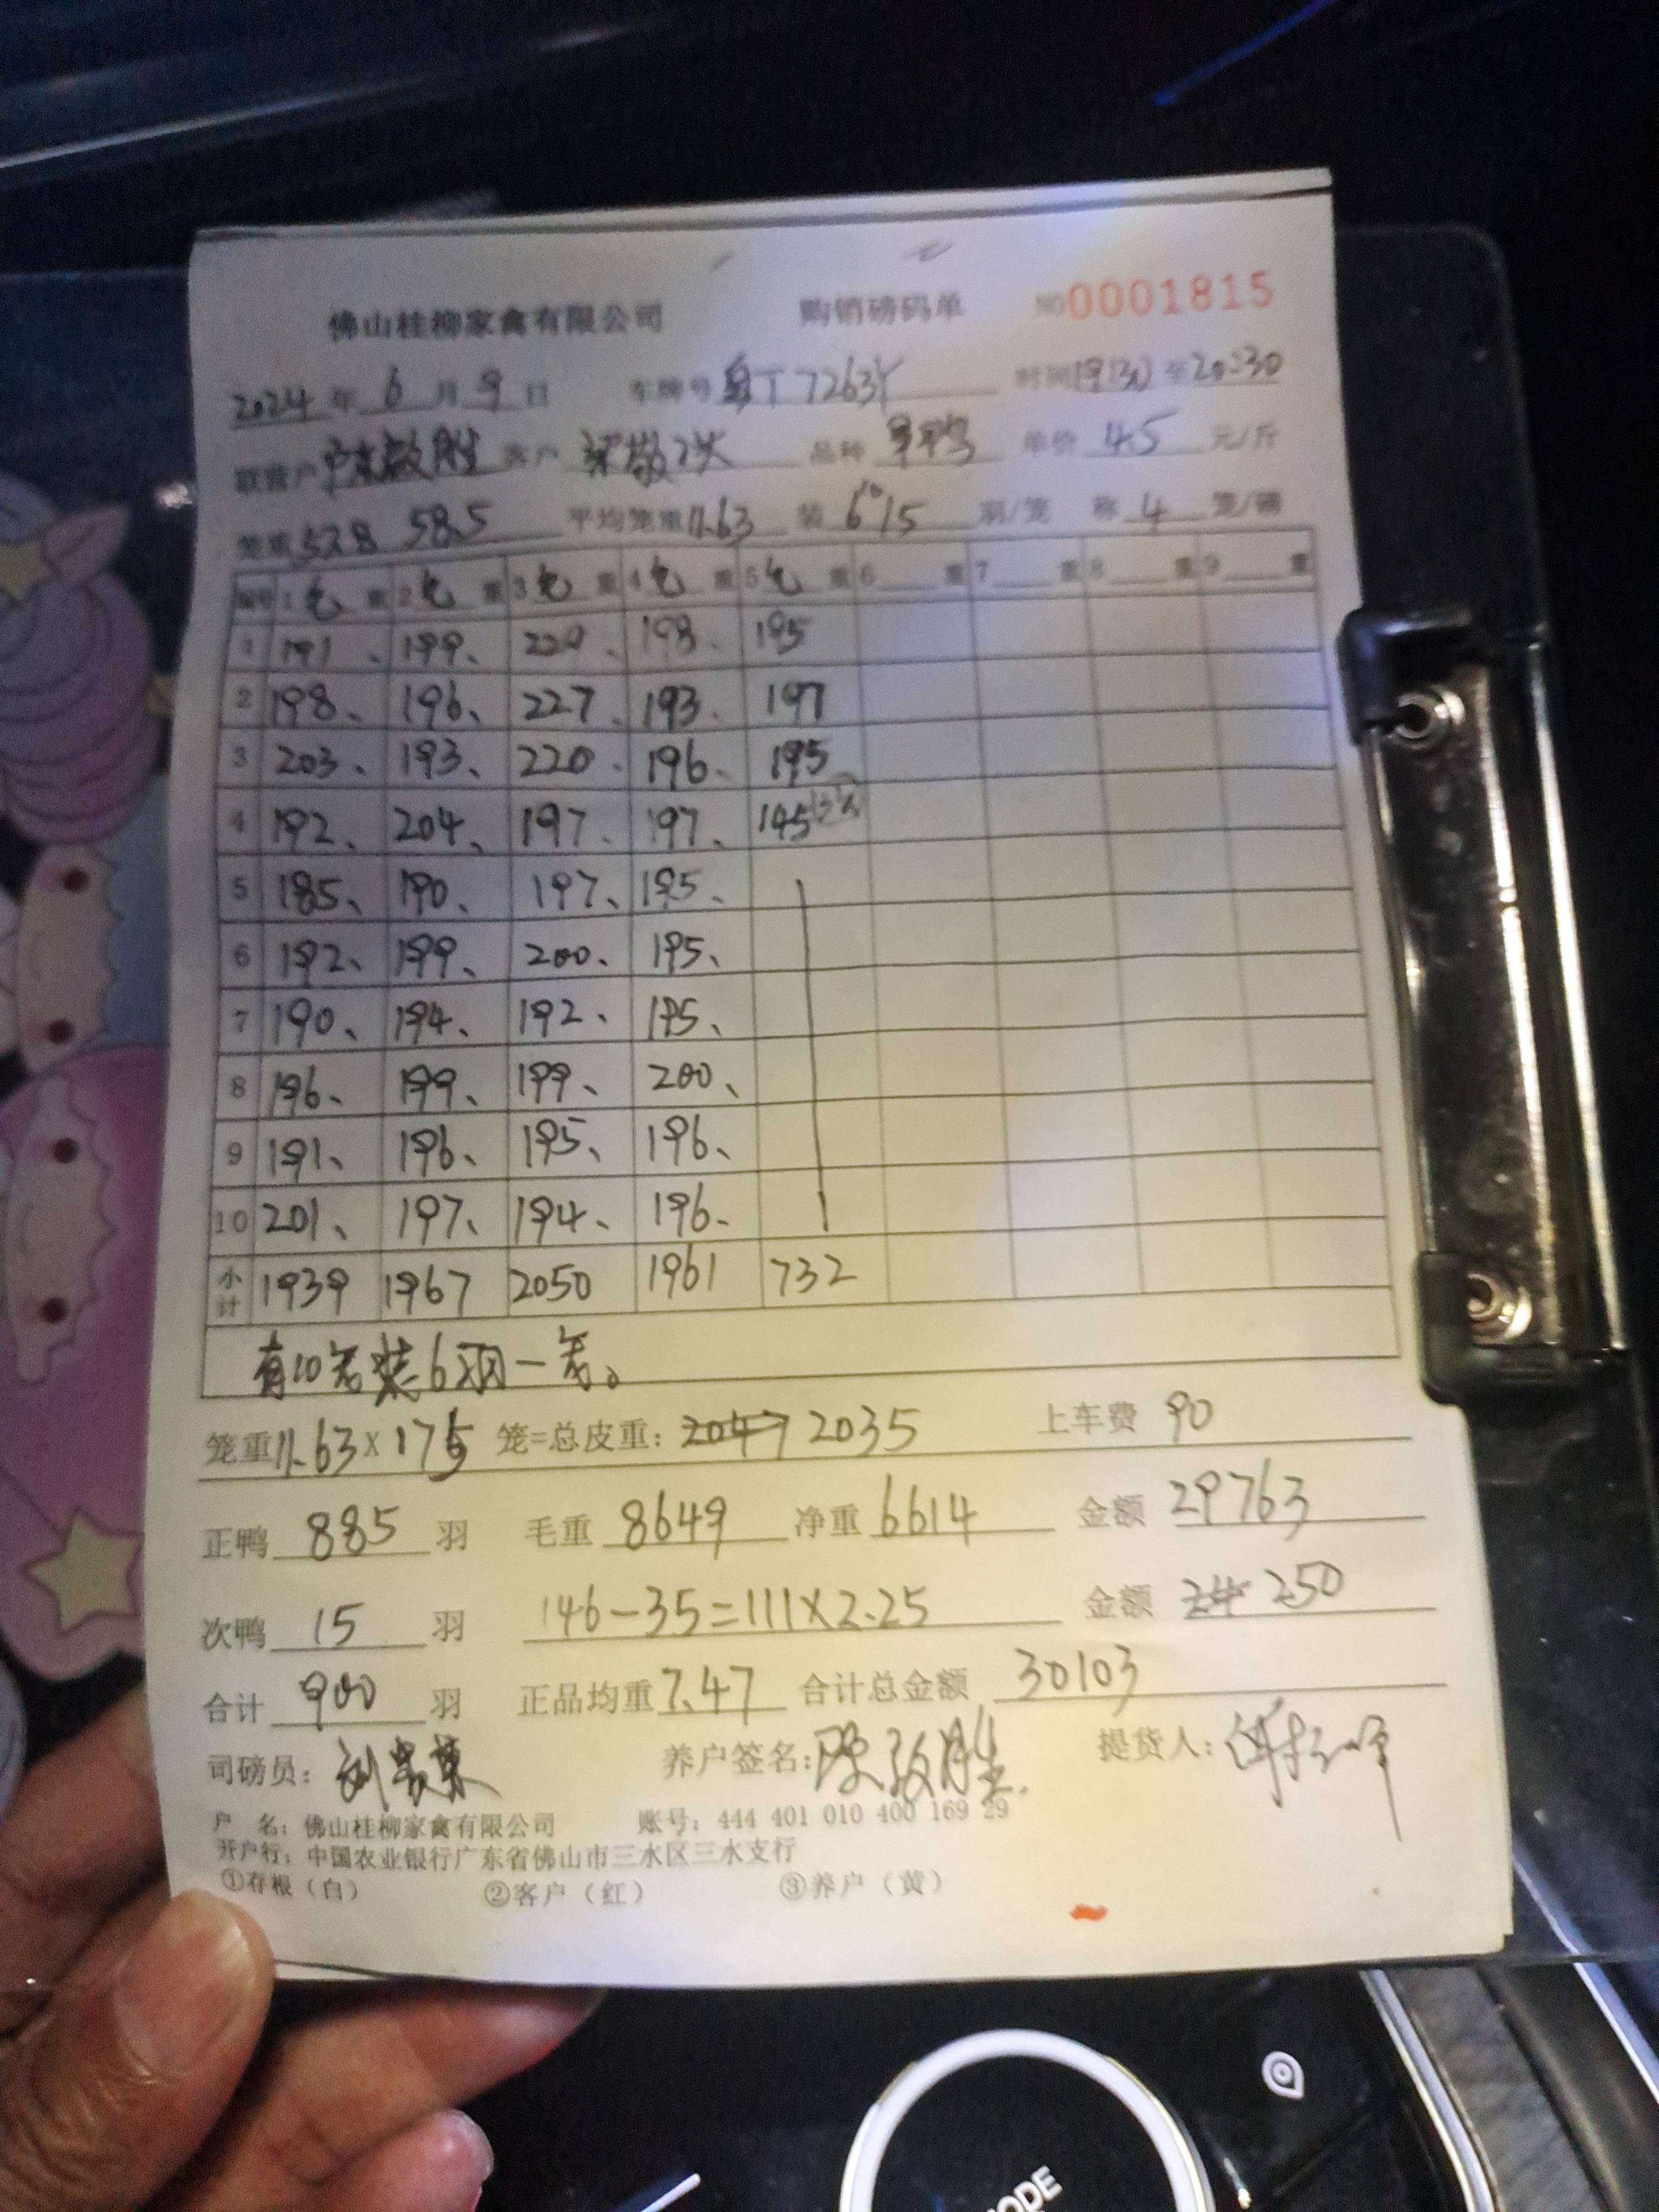 佛山桂柳家禽有限公司 购销磅码单 NO 0001815
2024 年 6 月 9 日 车牌号 粤J7263Y 时间 19:30 至 20:30
联营户 陈敬胜 客户 品种 单价 4.5 元/斤
笼重 52.8 58.5 平均笼重 11.63 装 6 5 羽/笼 称 4 笼/磅
编号 1 毛 重 2 毛 重 3 毛 重 4 毛 重 5 毛 重 6 重 7 重 8 重 9 重
1 191、 199、 220、 198、 195
2 198、 196、 227、 193、 197
3 203、 193、 220、 196、 195
4 192、 204、 197、 197、 145
5 185、 190、 197、 195、
6 192、 199、 200、 195、
7 190、 194、 192、 195、
8 196、 199、 199、 200、
9 191、 196、 195、 196、
10 201、 197、 194、 196、
小计 1939 1967 2050 1961 732
有10笼装6羽一笼。
笼重 11.63 X 175 笼=总皮重: 2047 2035 上车费 90
正鸭 885 羽 毛重 8649 净重 6614 金额 29763
次鸭 15 羽 146-35=111X2.25 金额 24 250
合计 900 羽 正品均重 7.47 合计总金额 30103
司磅员: 养户签名: 陈敬胜 提货人:
户 名: 佛山桂柳家禽有限公司 账号: 444 401 010 400 169 29
开户行: 中国农业银行广东省佛山市三水区三水支行
①存根（白） ②客户（红） ③养户（黄）
MODE